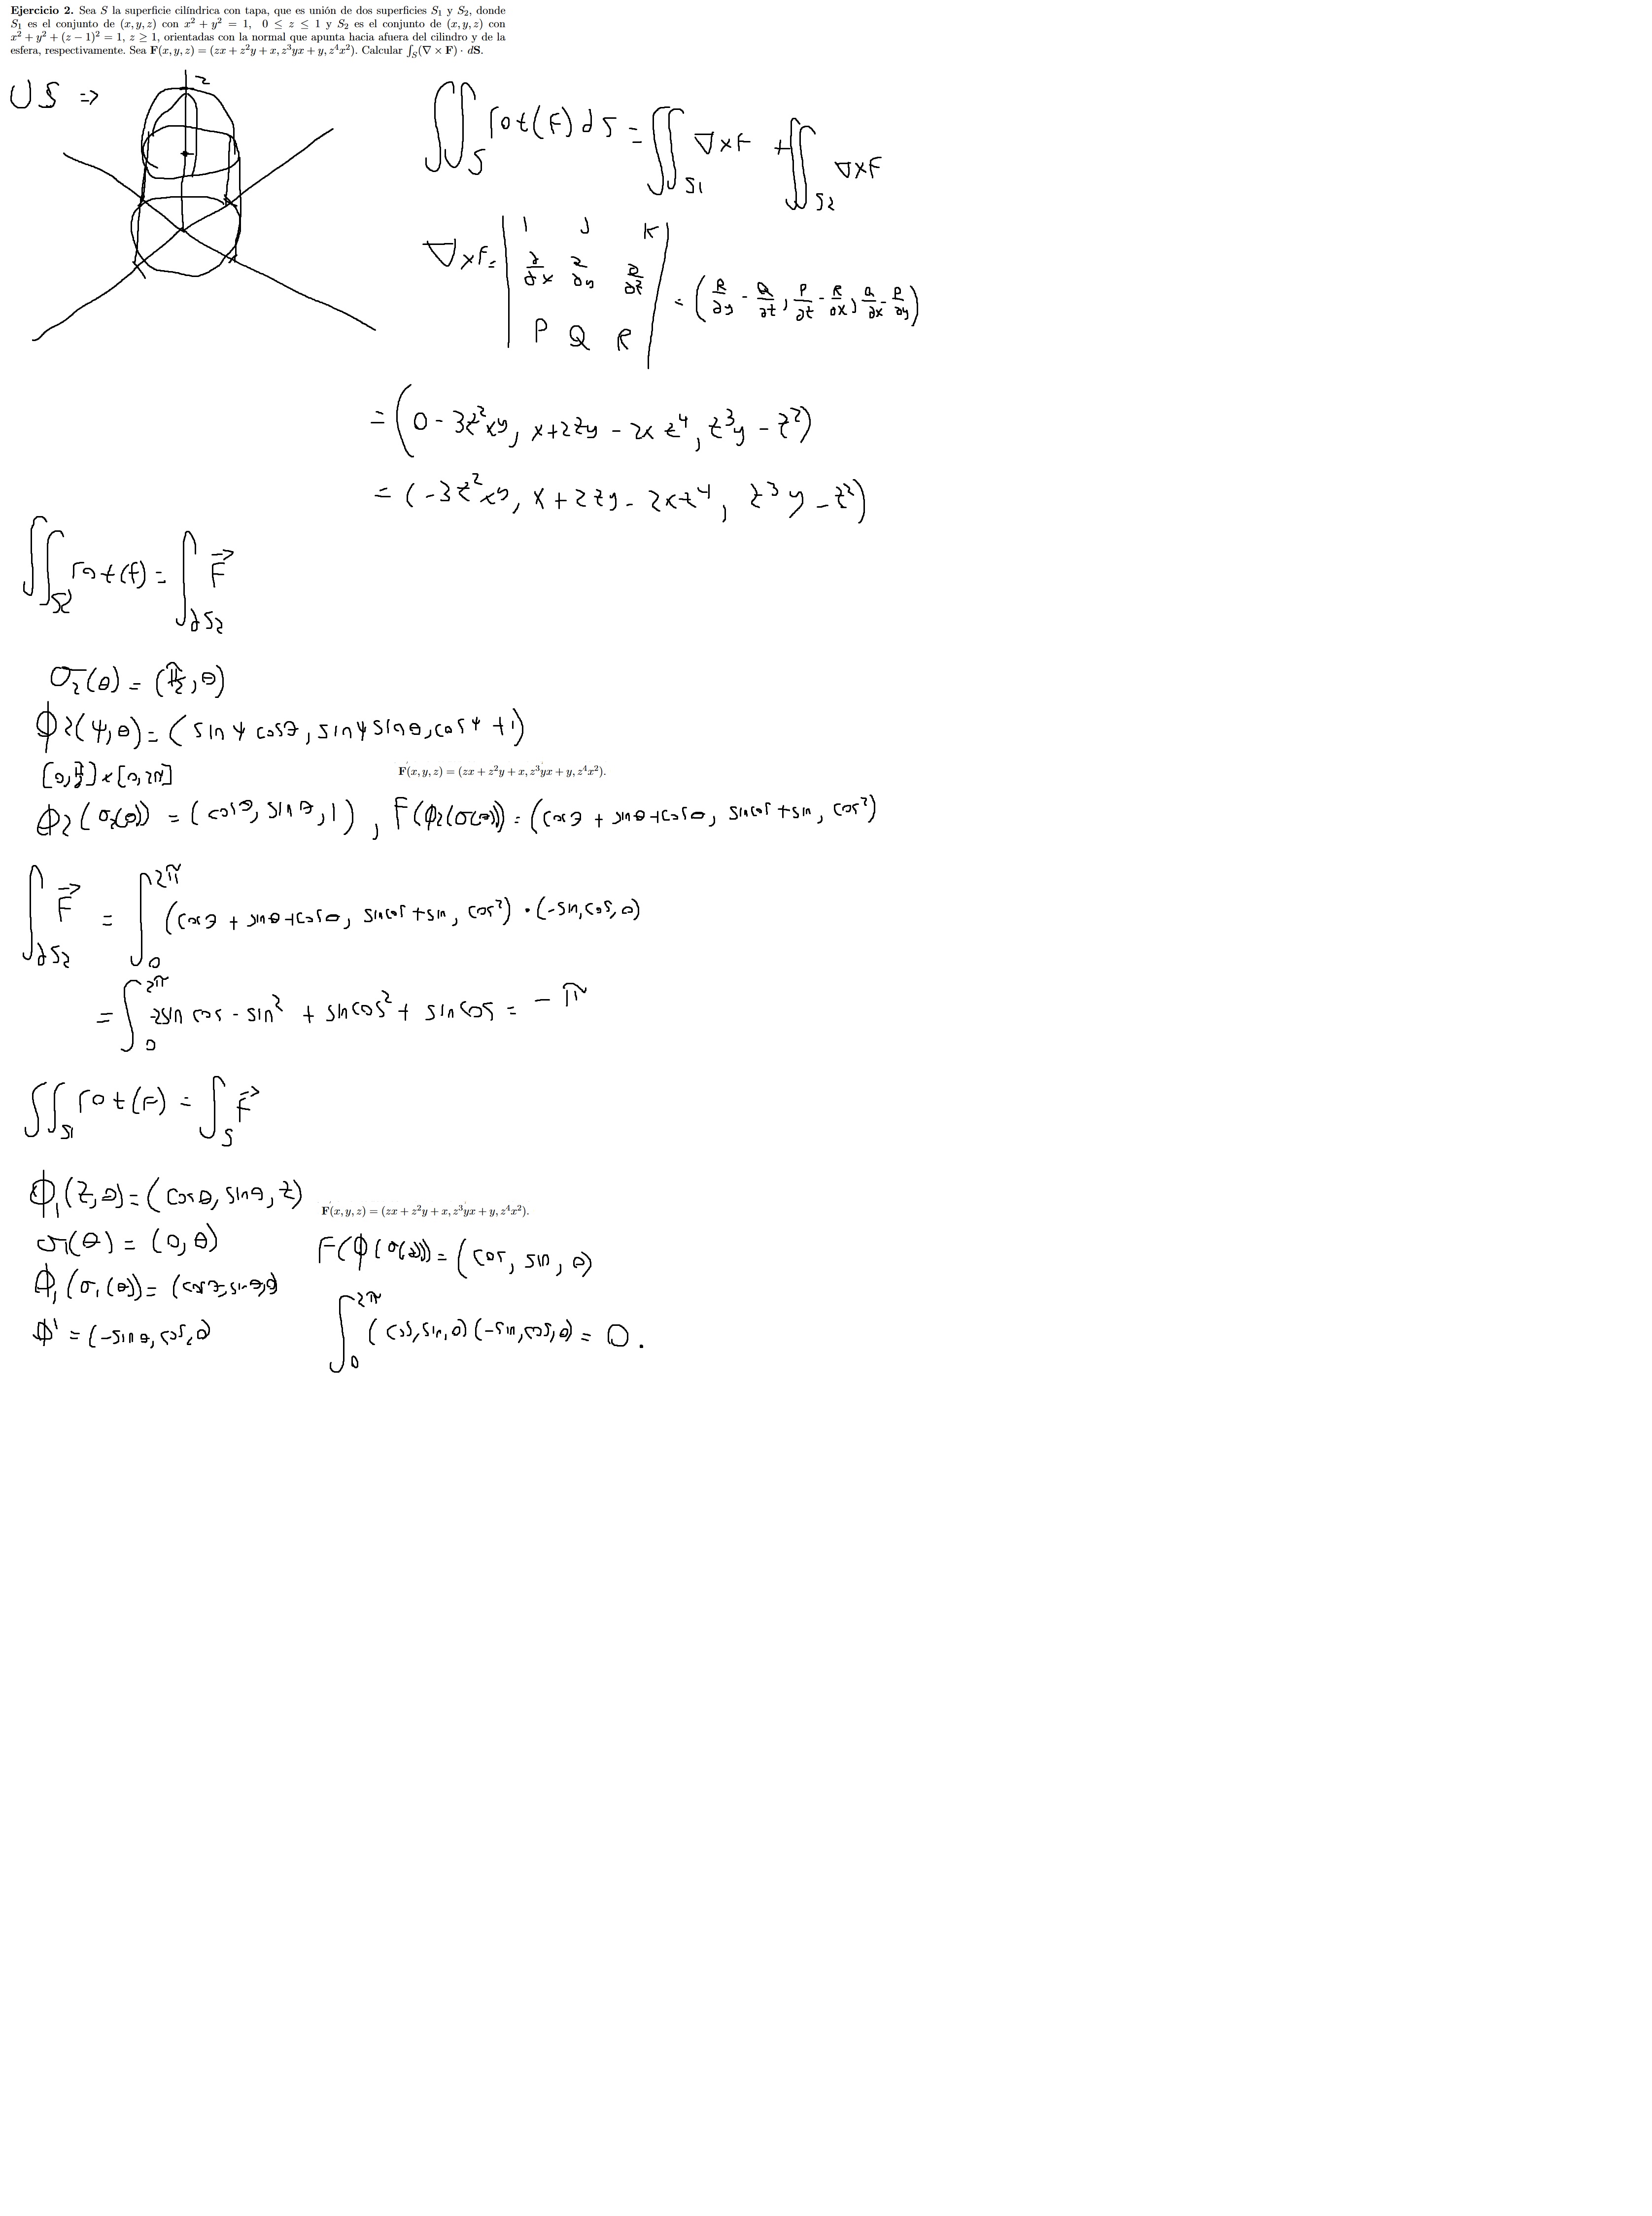 Ejercicio 2. Sea S la superficie cilíndrica con tapa, que es unión de dos superficies S₁ y S₂, donde
S₁ es el conjunto de (x, y, z) con x² + y² = 1, 0 ≤ z ≤ 1 y S₂ es el conjunto de (x, y, z) con
x² + y² + (z − 1)² = 1, z ≥ 1, orientadas con la normal que apunta hacia afuera del cilindro y de la
esfera, respectivamente. Sea F(x, y, z) = (zx + z²y + x, z³yx + y, z⁴x²). Calcular ∫_S(∇ × F) · dS.
US =>
z
∬_S rot(F) dS = ∬_S1 ∇xF + ∬_S2 ∇xF
∇xF = | i j k |
| ∂/∂x ∂/∂y ∂/∂z | = (R/∂y - Q/∂z, P/∂z - R/∂x, Q/∂x - P/∂y)
| P Q R |
= (0 - 3z²xy, x + 2zy - 2xz⁴, z³y - z²)
= (-3z²xy, x + 2zy - 2xz⁴, z³y - z²)
∬_S2 rot(F) = ∫_∂S2 F⃗
σ₂(θ) = (π/2, θ)
ϕ2(ψ, θ) = (sinψ cosθ, sinψ sinθ, cosψ + 1)
[0, π/2] x [0, 2π]
F(x, y, z) = (zx + z²y + x, z³yx + y, z⁴x²).
ϕ2(σ₂(θ)) = (cosθ, sinθ, 1), F(ϕ2(σ(θ))) = (cosθ + sinθ + cosθ, sincos + sin, cos²)
∫_∂S2 F⃗ = ∫₀^2π (cosθ + sinθ + cosθ, sincos + sin, cos²) · (-sin, cos, 0)
= ∫₀^2π -2sin cos - sin² + sin cos² + sin cos = - π
∬_S1 rot(F) = ∫_S F⃗
ϕ₁(z, θ) = (cosθ, sinθ, z)
F(x, y, z) = (zx + z²y + x, z³yx + y, z⁴x²).
σ₁(θ) = (0, θ)
F(ϕ(σ(θ))) = (cos, sin, 0)
ϕ₁(σ₁(θ)) = (cosθ, sinθ, 0)
ϕ' = (-sinθ, cos, 0)
∫₀^2π (cos, sin, 0) (-sin, cos, 0) = 0.